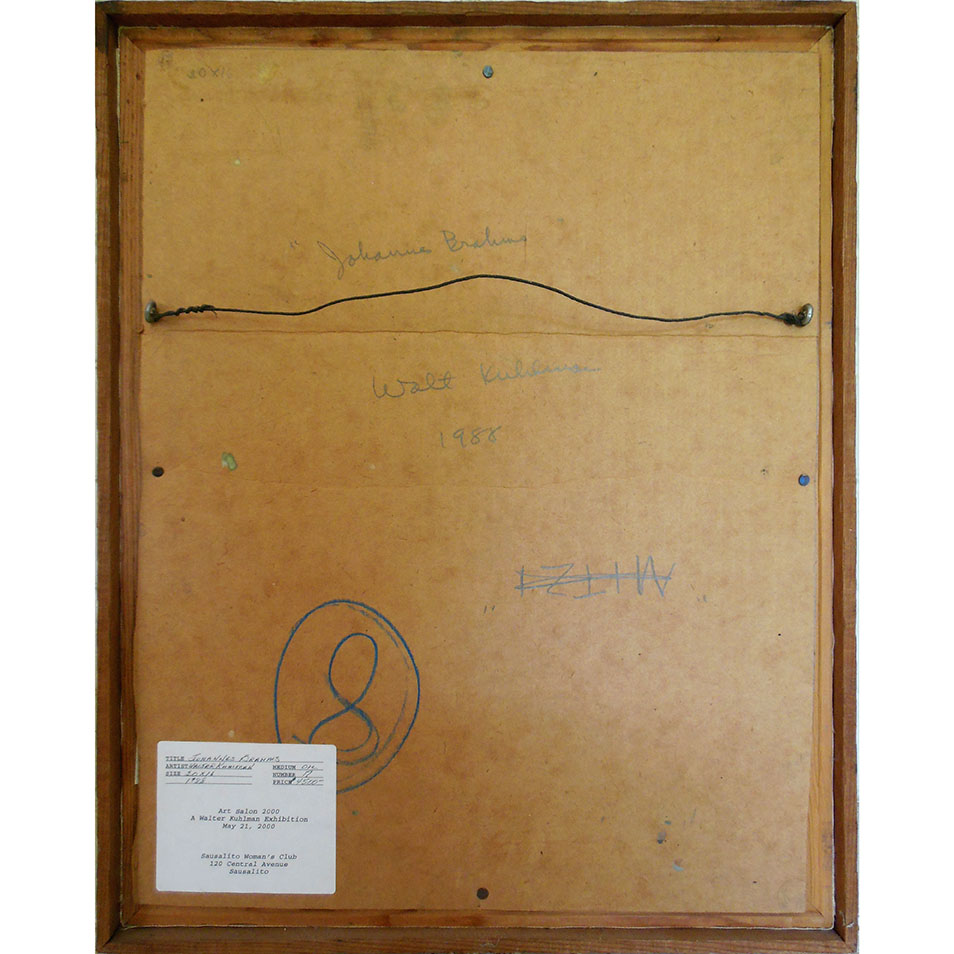 20X16
"Johannes Brahms
Walt Kuhlman
1988
8
TITLE JOHANNES BRAHMS
ARTIST WALTER KUHLMAN MEDIUM OIL
SIZE 20X16 NUMBER
1988 PRICE $4500
Art Salon 2000
A Walter Kuhlman Exhibition
May 21, 2000
Sausalito Woman's Club
120 Central Avenue
Sausalito